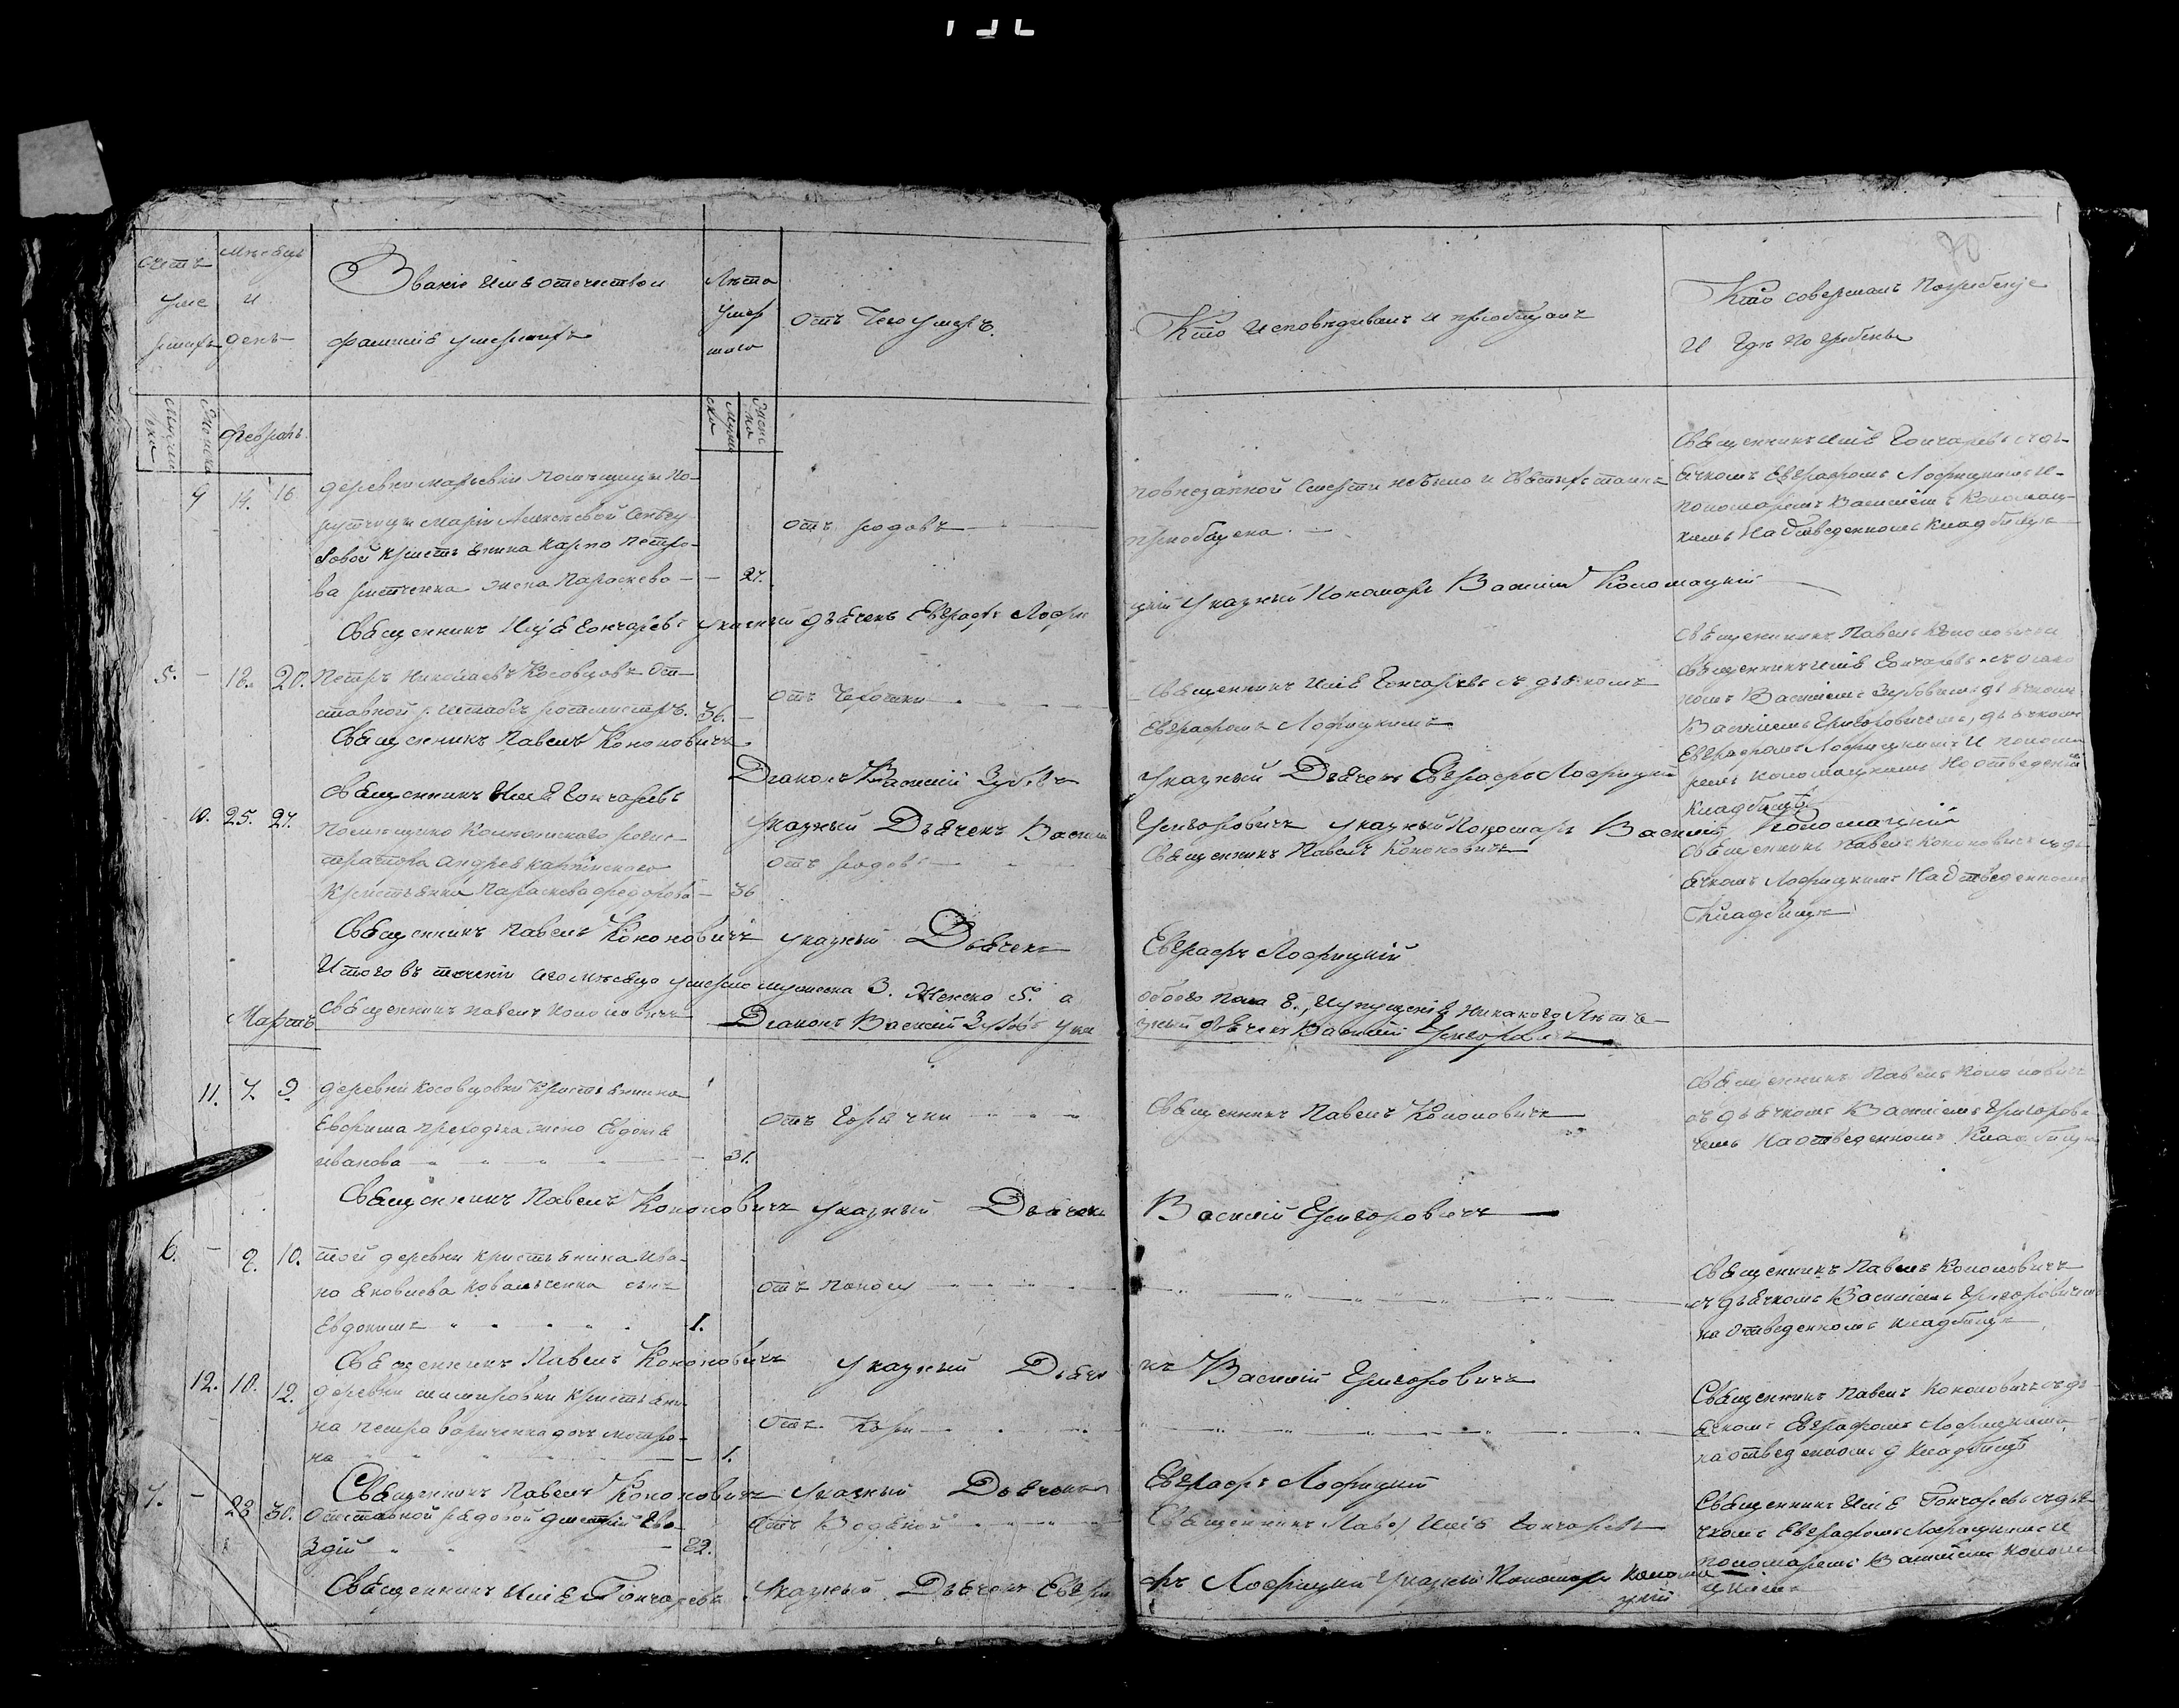 70
Счетъ умершихъ
Мѣсяцъ и день
Званіе имя отечество и
фамилія умершихъ
Лѣта умершаго
Отъ чего умеръ.
Кто исповѣдывалъ и пріобщалъ
Кто совершалъ погребеніе
и гдѣ погребены
Мужеска
Женска
Февраль.
Мужеска
Женска
9 14. 16
деревни Марьевки помѣщицы По-
ручицы Маріи Алексѣевой
крестьянина Карпа Петро-
ва жена Параскева — — 27.
отъ родовъ
повнезапной смерти небыло и Святыхъ таинъ
пріобщена.
Священникъ Илія Гончаревъ съ дь-
ячкомъ Евграфомъ Лофицкимъ и
пономаремъ Василіемъ Коломац-
кимъ На Отведенномъ кладбищѣ
Священникъ Илія Гончаревъ указный дьячекъ Евграфъ Лофи
цкій Указный Пономарь Василій Коломацкій
5. — 18. 20.
Петръ Николаевъ Косовцовъ От-
ставной штабсъ ротмистръ. 36. —
отъ Чахотки
Священникъ Илія Гончаревъ съ дьячкомъ
Евграфомъ Лофицкимъ
Священникъ Павелъ Кононовичъ
Священникъ Илія Гончаревъ съ діако
номъ Василіемъ Зубовымъ дьячкомъ
Василіемъ Григоровичемъ, дьячкомъ
Евграфомъ Лофицкимъ И понома
ремъ Коломацкимъ На отведенномъ
кладбищѣ
Священникъ Павелъ Кононовичъ
Діаконъ Василій Зубовъ
Указный Дьячекъ Евграфъ Лофицкій
Священникъ Илія Гончаревъ
Указный Дьячекъ Василій
Григоровичъ указный Пономарь Василій Коломацкій
10. 25. 27.
помѣщика Колѣжскаго регис-
тратора Андрея
Крестьянка Параскева Федорова — 36
отъ родовъ
Священникъ Павелъ Кононовичъ
Священникъ Павелъ Кононовичъ съ дь
ячкомъ Лофицкимъ На Отведенномъ
Кладбищѣ
Священникъ Павелъ Кононовичъ указный Дьячекъ
Евграфъ Лофицкій
Итого въ теченіи сего мѣсяца умерло мужеска 3. Женска 5. а
обоего пола 8., И упущенія никакого Нѣтъ
Священникъ Павелъ Кононовичъ Діаконъ Василій Зубовъ Ука
зный дьячекъ Василій Григоровичъ
Мартъ
11. 7. 9.
деревни Косовцовки Крестьянина
Ефима жена Евдокія
иванова — 31.
отъ Горячки
Священникъ Павелъ Кононовичъ
Священникъ Павелъ Кононовичъ
съ дьячкомъ Василіемъ Григорови
чемъ На отведенномъ Кладбищѣ
Священникъ Павелъ Кононовичъ указный Дьячекъ
Василій Григоровичъ
6. — 9. 10.
той деревни крестьянина Ива-
на Яковлева Коваленка сынъ
Евдокимъ 1.
отъ поносу
Священникъ Павелъ Кононовичъ
съ дьячкомъ Василіемъ Григоровичемъ
на Отведенномъ кладбищѣ
Священникъ Павелъ Кононовичъ указный Дьяче
къ Василій Григоровичъ
12. 10. 12.
деревни крестьяни
на Петра дочь Матро-
на — 1.
отъ Кори
Священникъ Павелъ Кононовичъ съ дь
ячкомъ Евграфомъ Лофицкимъ
на отведенномъ кладбищѣ
Священникъ Павелъ Кононовичъ указный Дьячекъ
Евграфъ Лофицкій
7. — 28 30.
Отставной рядовой Дмитрій Гво-
здій — 82.
Отъ Водяной
Священникъ Илія Гончаревъ
Священникъ Илія Гончаревъ съ дья-
чкомъ Евграфомъ Лофицкимъ И
пономаремъ Василіемъ Колома
цкимъ
Священникъ Илія Гончаревъ Указный Дьячекъ Евгра
фъ Лофицкій Указный Пономарь Колома
цкій